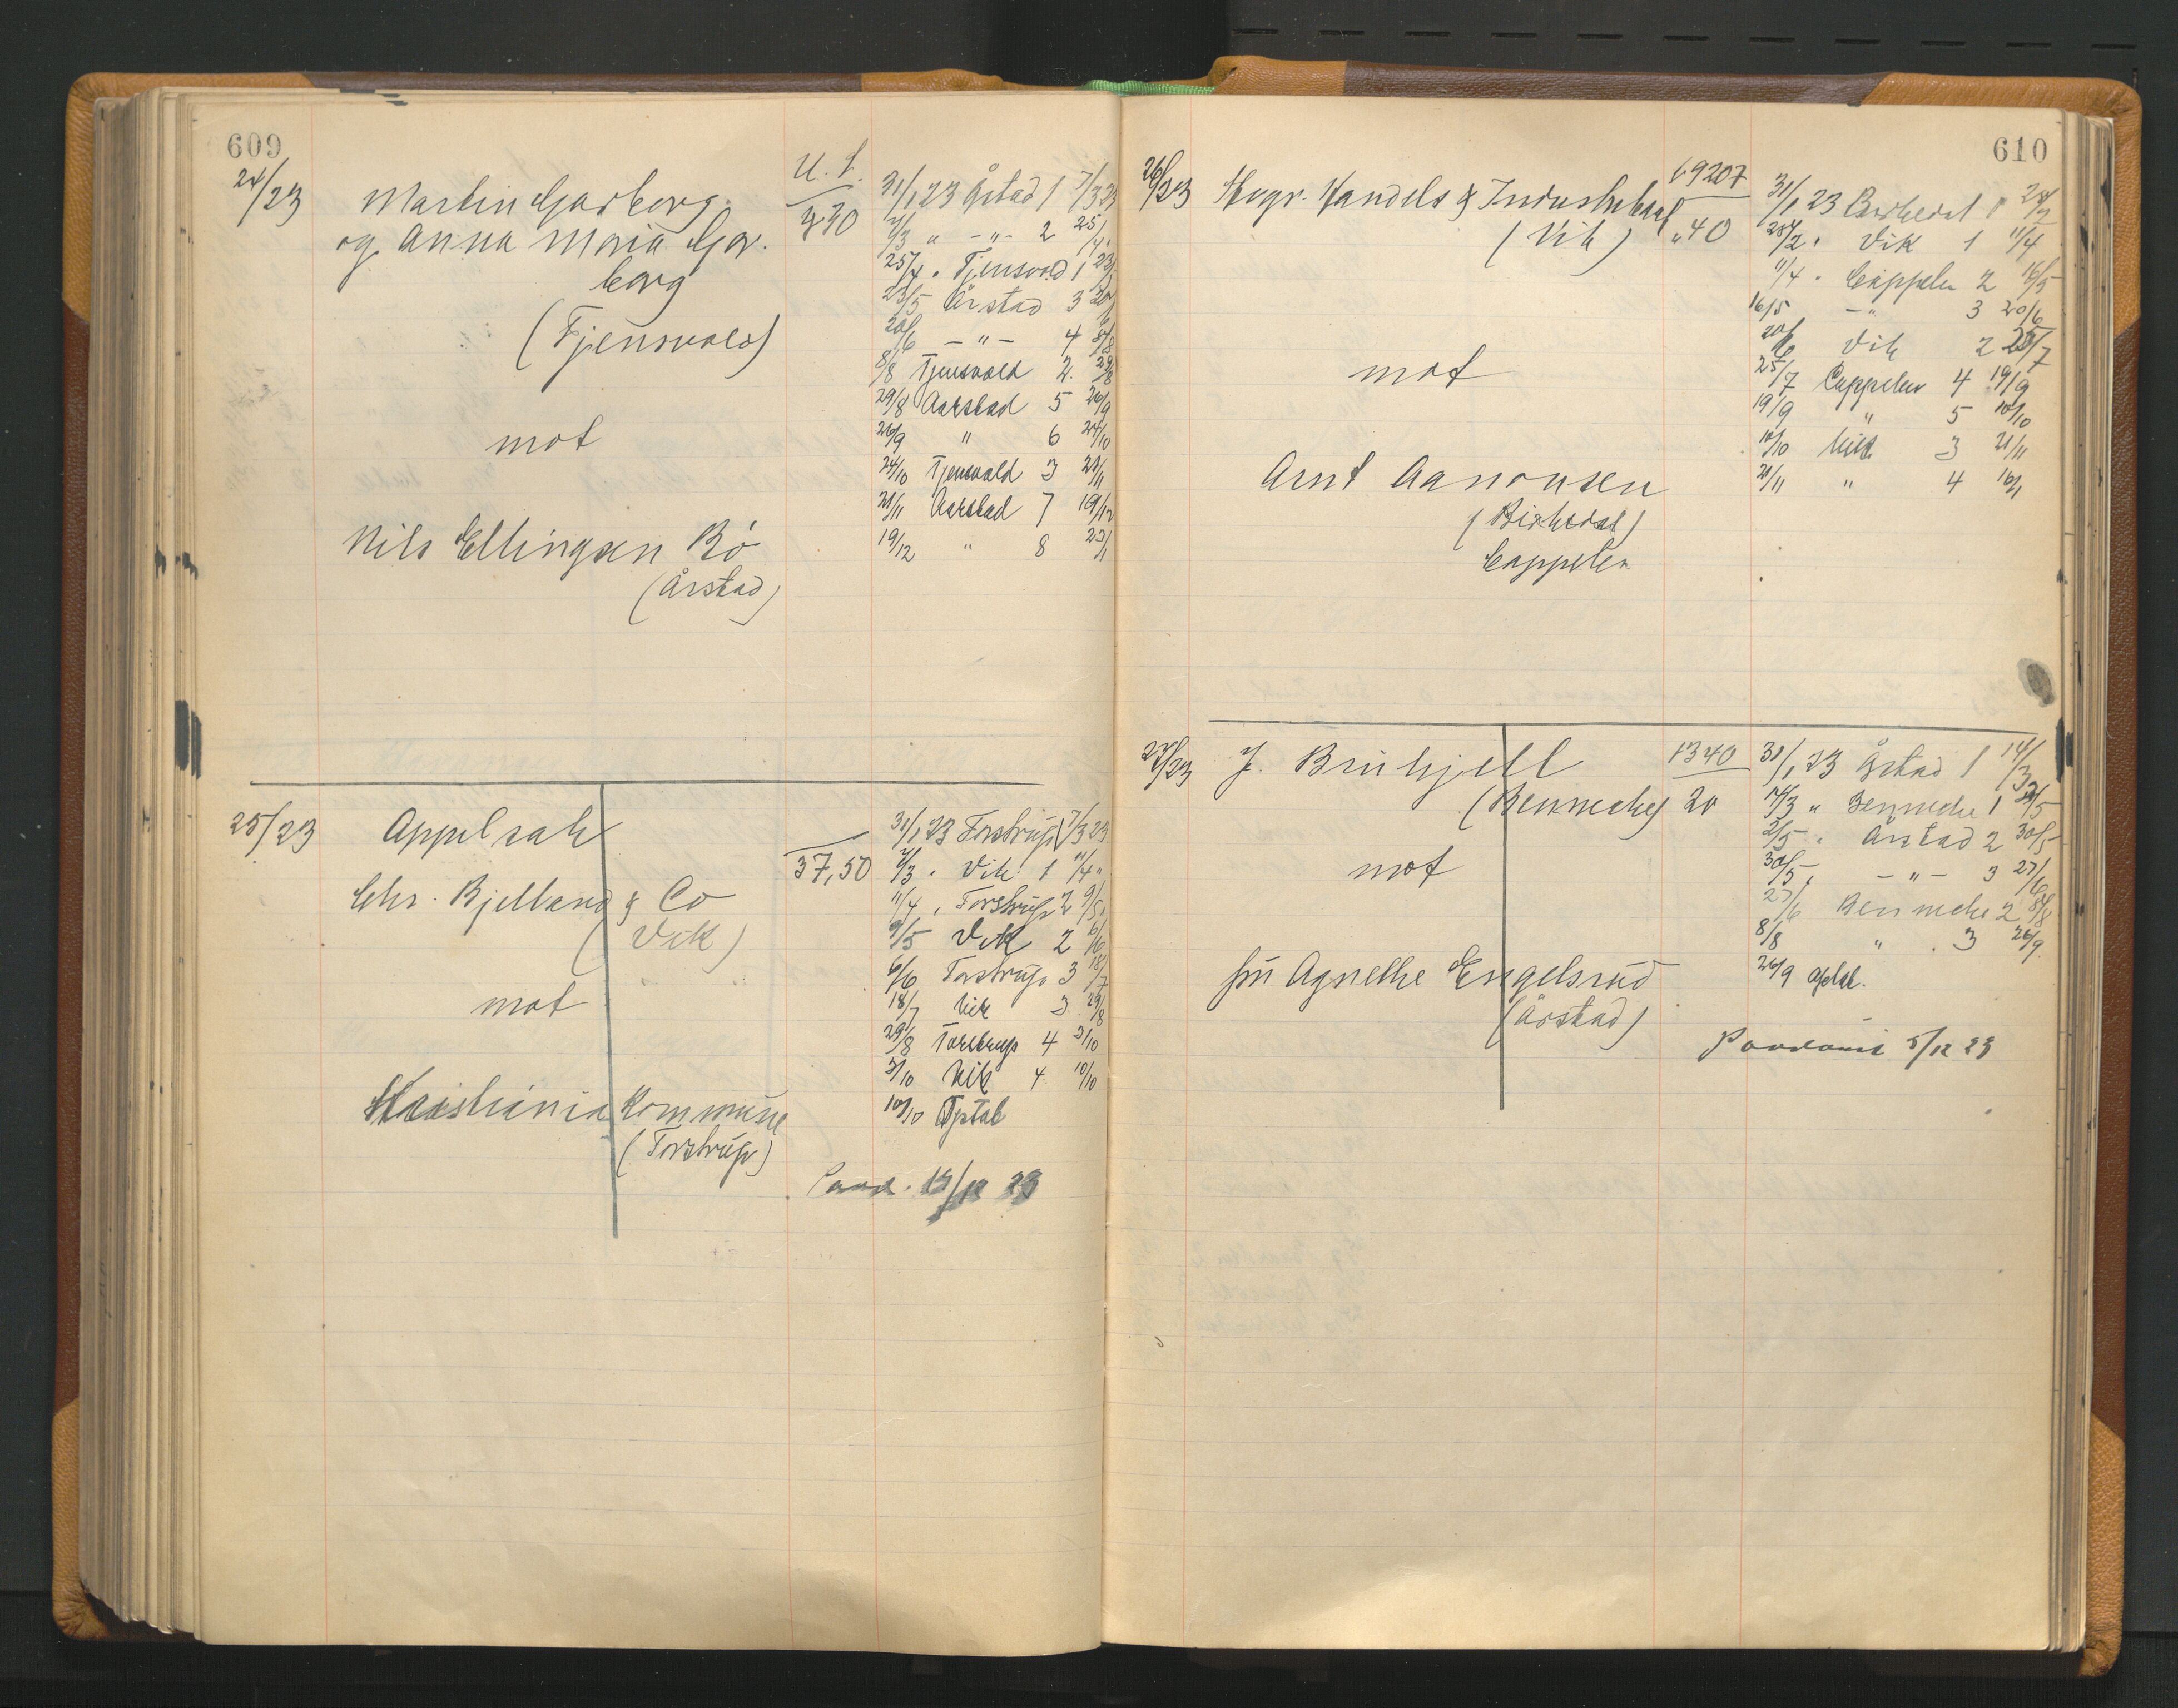 609
24/23 Martin Garborg U. S. 31/1 23 Årstad 1 7/3 23
og Anna Maria Gar- 7/3 " -"- 2 25/4
borg 25/4 " Tjensvold 1 23/5
(Tjensvold) 23/5 Årstad 3 20/6
20/6 -"- 4 8/8
8/8 Tjensvold 2 29/8
29/8 Aarstad 5 26/9
mot 26/9 " 6 24/10
24/10 Tjensvold 3 21/11
21/11 Aarstad 7 19/12
Nils Ellingsen Bö 19/12 " 8
(Årstad)
25/23 Appelsak 31/1 23 Torstrup 1 7/3 23
37,50 7/3 " Vik 1 11/4 "
Chr. Bjelland & Co 11/4 " Torstrup 2 9/5
(Vik) 9/5 Vik 2 6/6
6/6 Torstrup 3 18/7
mot 18/7 Vik 3 29/8
29/8 Torstrup 4 3/10
3/10 Vik 4 10/10
Kristiania Kommune 10/10 Optat
(Torstrup)
23
610
26/23 Norges Handels & Industribank 69207 31/1 23 Birkedal 1 28/2
(Vik) "40 28/2 " Vik 1 11/4
11/4 " Cappelen 2 16/5
16/5 -"- 3 20/6
20/6 Vik 2 25/7
mot 25/7 Cappelen 4 19/9
19/9 " 5 10/10
10/10 Vik 3 21/11
Arnt Aanonsen 21/11 " 4 16/1
(Birkedal)
Cappelen
27/23 J. Bruhjell 1340 31/1 23 Årstad 1 14/3
(Bennecke) 20 14/3 " Bennecke 1 2/5
2/5 " Årstad 2 30/5
mot 30/5 " -"- 3 27/6
27/6 Bennecke 2 8/8
8/8 " 3 26/9
fru Agnethe Engelsrud 26/9 optat.
(Årstad)
5/12 23